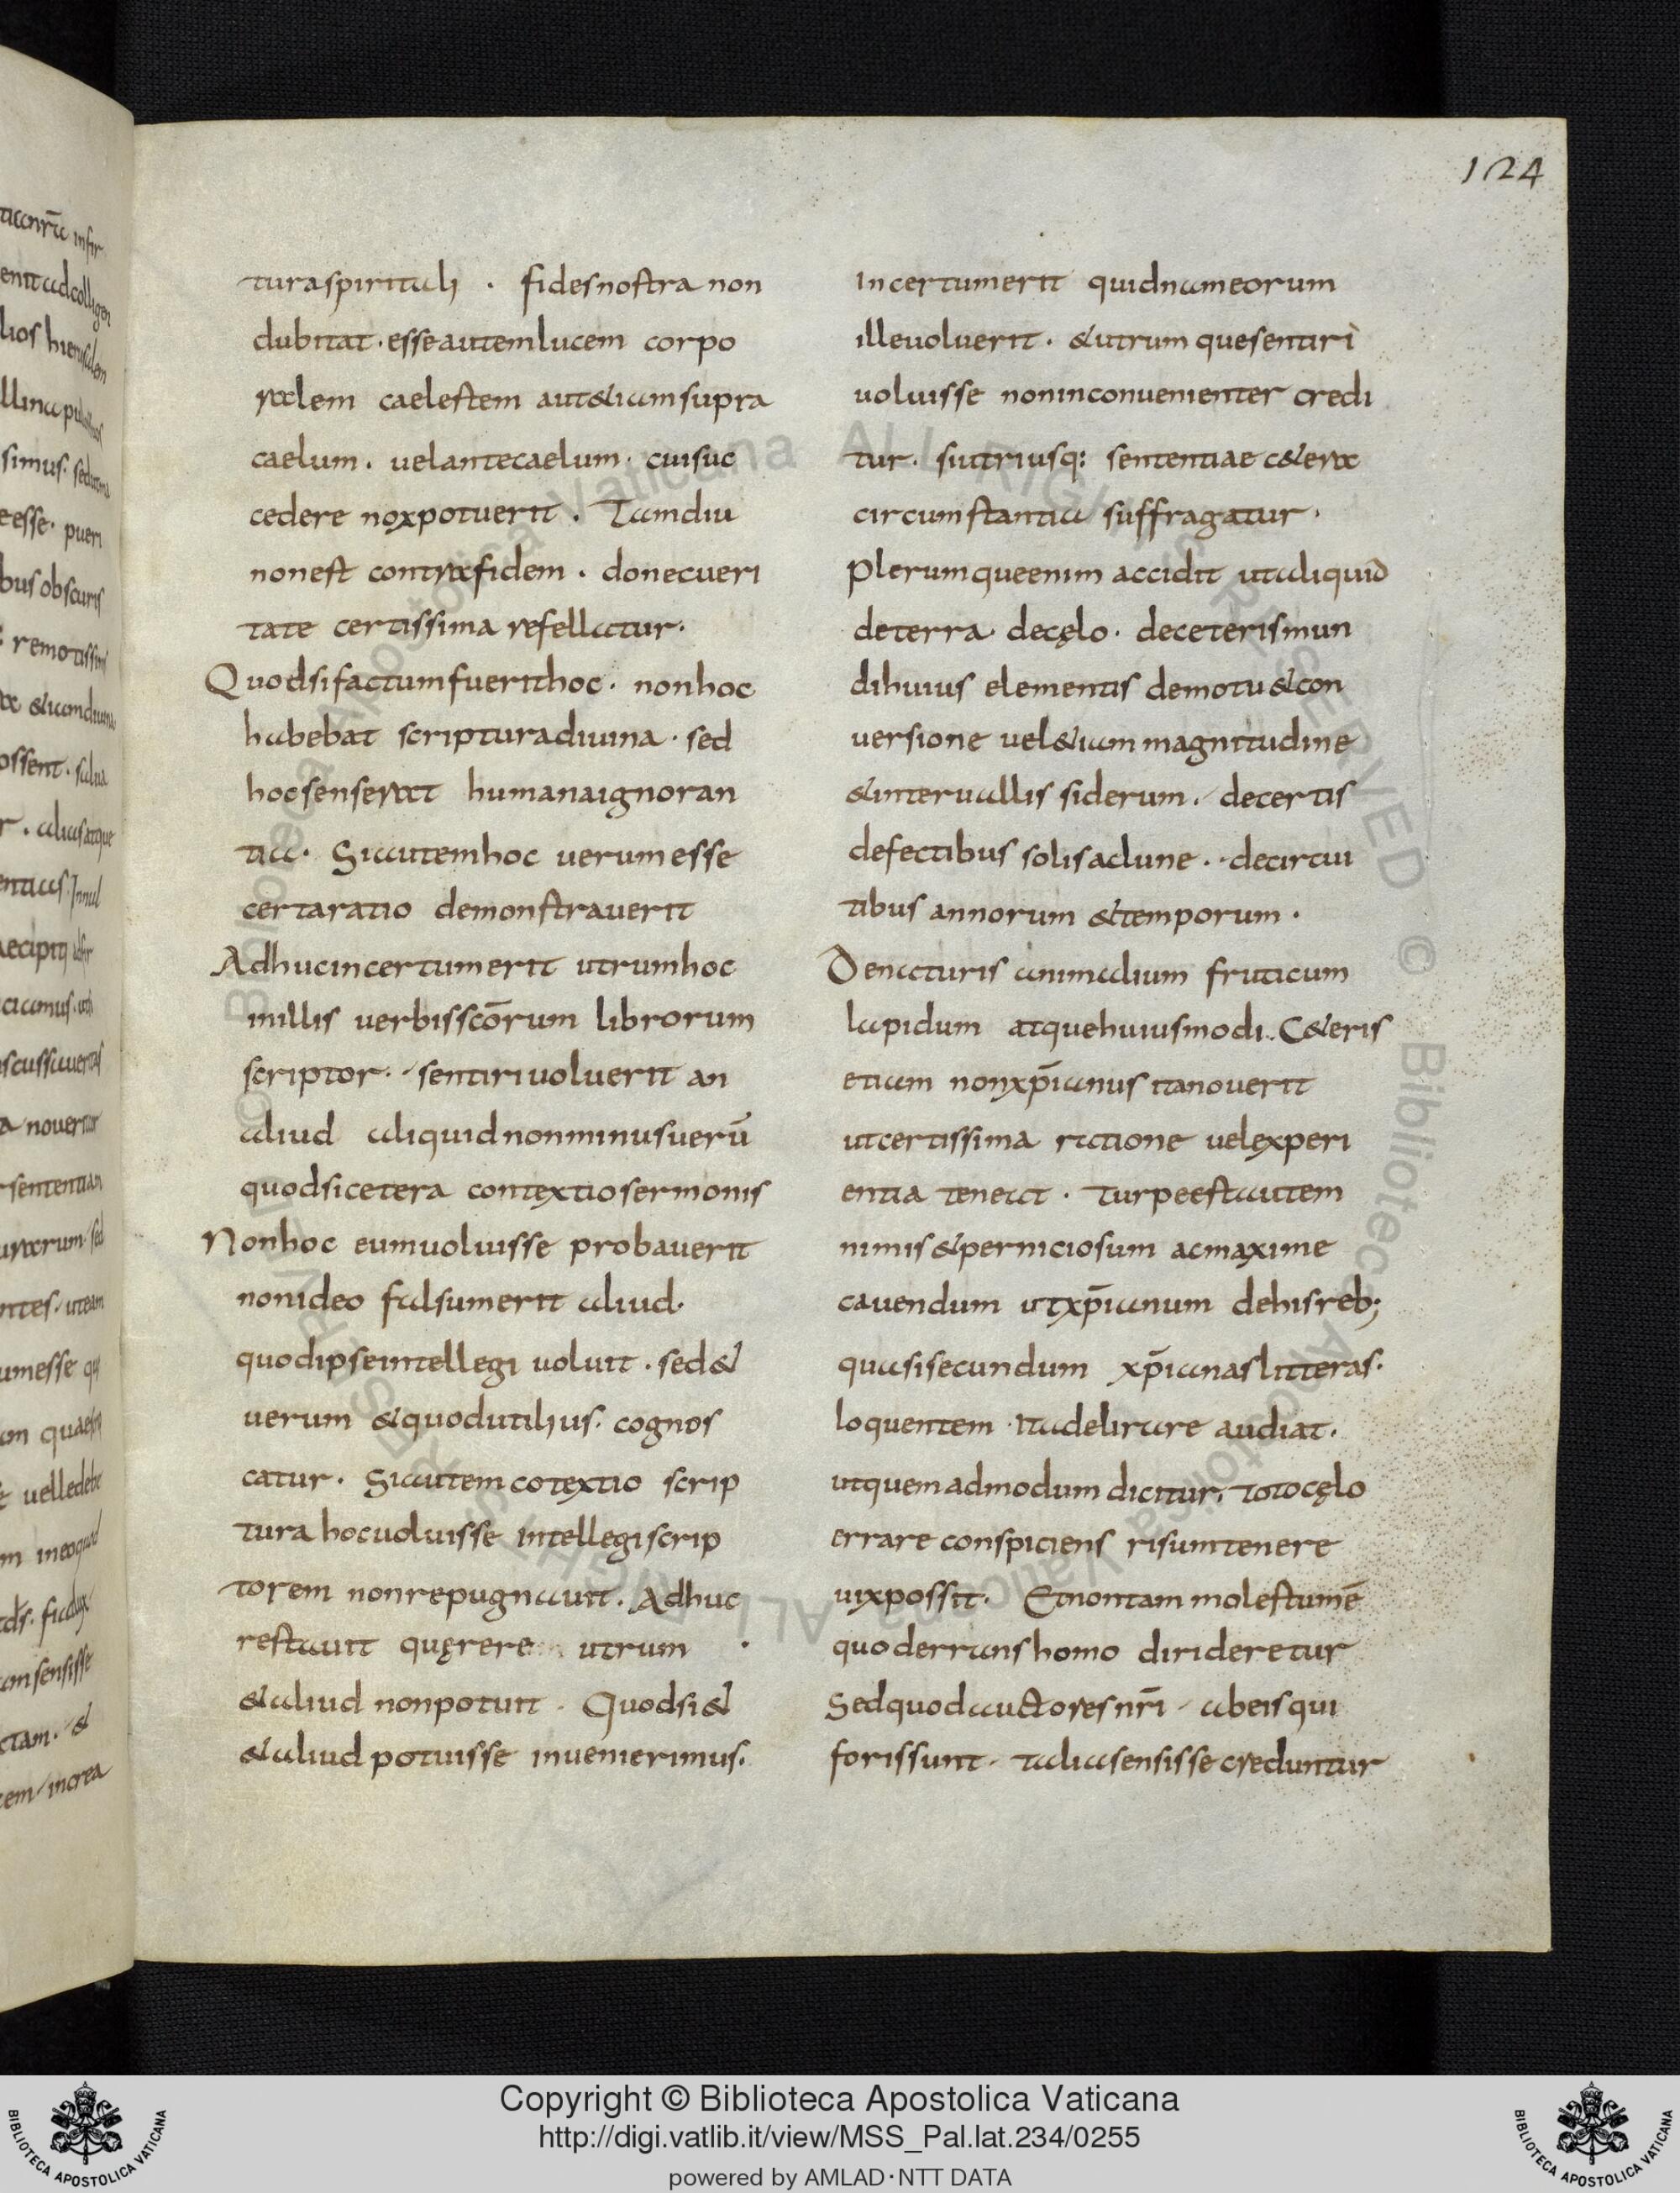 124
tura spiritali · fides nostra non
dubitat · esse autem lucem corpo
ralem caelestem aut &iam supra
caelum · uel ante caelum · cui suc
cedere nox potuerit · Tamdiu
non est contra fidem · donec ueri
tate certissima refellatur ·
Quod si factum fuerit hoc · non hoc
habebat scriptura diuina · sed
hoc senserat humana ignoran
tia · Si autem hoc uerum esse
certa ratio demonstrauerit
Adhuc incertum erit utrum hoc
in illis uerbis scōrum librorum
scriptor · sentiri uoluerit an
aliud aliquid non minus uerū
quod si cetera contextio sermonis
Non hoc eum uoluisse probauerit
non ideo falsum erit aliud ·
quod ipse intellegi uoluit · sed &
uerum & quod utilius · cognos
catur · Si autem cotextio scrip
tura hoc uoluisse intellegi scrip
torem non repugnauit · Adhuc
restauit quęrere utrum ·
& aliud non potuit · Quod si &
& aliud potuisse inuenierimus ·
Incertum erit quidnam eorum
ille uoluerit · & utrumque sentiri
uoluisse non inconuenienter credi
tur · si utriusq: sententiae c&era
circumstantia suffragatur ·
Plerumque enim accidit ut aliquid
de terra · de cęlo · de ceteris mun
di huius elementis de motu & con
uersione uel &iam magnitudine
& interuallis siderum · de certis
defectibus solis ac lune · de circui
tibus annorum & temporum ·
De naturis animalium fruticum
lapidum atque huiusmodi · C&eris
etiam non xp̄ianus ita nouerit
ut certissima ratione uel experi
entia teneat · Turpe est autem
nimis & perniciosum ac maxime
cauendum ut xp̄ianum de his reb;
quasi secundum xp̄ianas litteras ·
loquentem · ita delirare audiat ·
ut quem admodum dicitur, toto cęlo
errare conspiciens risum tenere
uix possit · Et non tam molestum ē
quod errans homo dirideretur
Sed quod auctores nr̄i · ab eis qui
foris sunt · talia sensisse creduntur
Copyright © Biblioteca Apostolica Vaticana
http://digi.vatlib.it/view/MSS_Pal.lat.234/0255
powered by AMLAD·NTT DATA
BIBLIOTECA APOSTOLICA VATICANA
BIBLIOTECA APOSTOLICA VATICANA